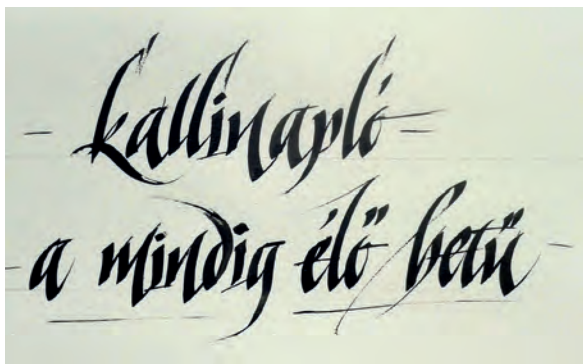 - kallinapló -
- a mindig élő betű -